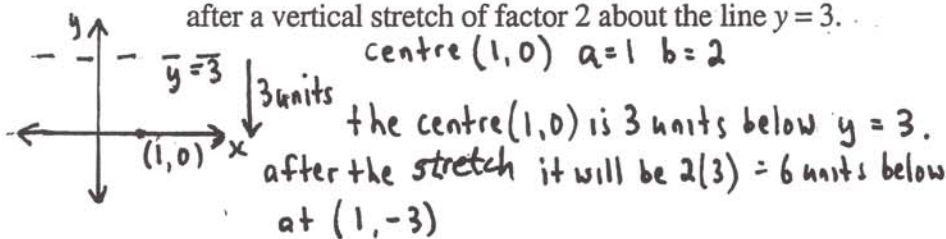 after a vertical stretch of factor 2 about the line y = 3.
centre (1,0) a=1 b=2
y
y=3
3 units
the centre (1,0) is 3 units below y = 3.
(1,0) x
after the stretch it will be 2(3) = 6 units below
at (1,-3)